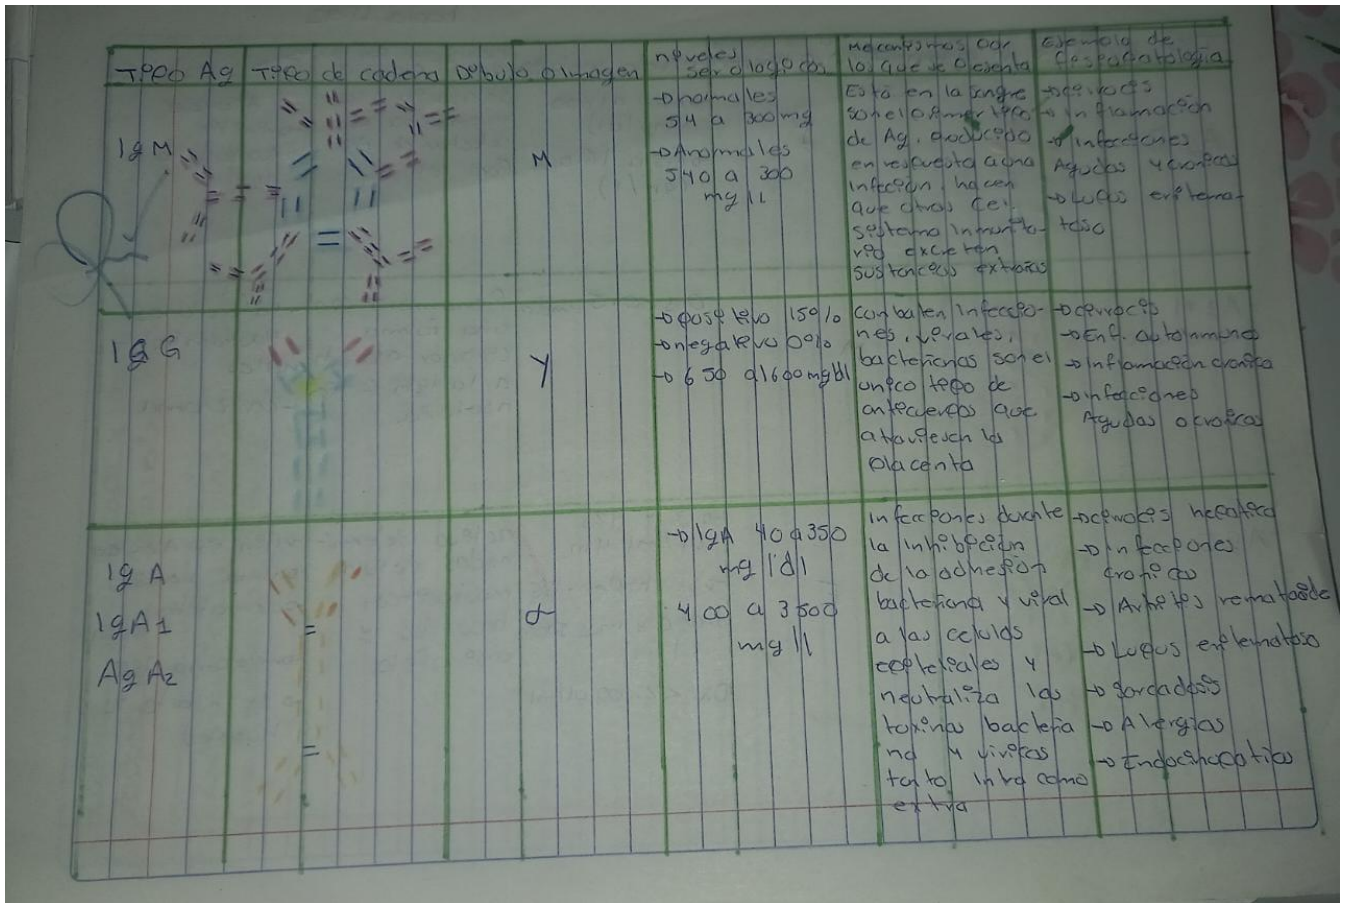 Tipo Ag
Tipo de cadena
Dibujo o imagen
niveles
serologicos
Mecanismos por
lo que se presenta
Ejemplo de
fisiopatologia
IgM
M
→ normales
54 a 300 mg
→ Anormales
540 a 300
mg/l
Está en la sangre
son el primer tipo
de Ag. producido
en respuesta a una
infección, hacen
que otras cel
sistema inmunita-
rio
sustancias extrañas
→ cirrocis
→ inflamación
→ infecciones
Agudas y cronicas
→ Lupus eritema-
toso
IgG
γ
→ positivo 15%
→ negativo 0%
→ 650 a 1600 mg/dl
Combaten infeccio-
nes, virales,
bacterianas son el
unico tipo de
anticuerpos que
atraviesan la
placenta
→ cirrocis
→ Enf. autoinmune
→ Inflamación cronica
→ infecciones
Agudas o cronicas
IgA
IgA1
AgA2
α
→ IgA 40 a 350
mg/dl
400 a 3500
mg/l
infecciones durante
la inhibición
de la adhesión
bacteriana y viral
a las celulas
epiteleales y
neutraliza las
toxinas bacteria
na y viricas
tanto intra como
extra
→ cirrocis hepatica
→ infecciones
cronicas
→ Artritis rematoide
→ Lupus eritematoso
→ Sorcadosis
→ Alergias